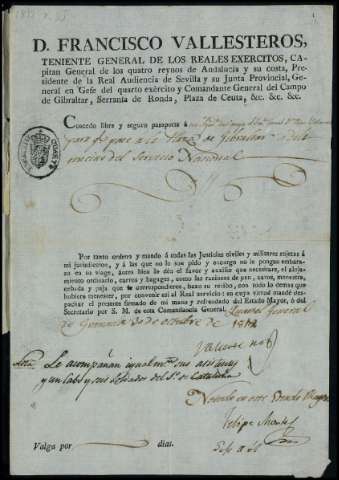 D. FRANCISCO VALLESTEROS,
TENIENTE GENERAL DE LOS REALES EXERCITOS, CA-
pitan General de los quatro reynos de Andalucia y su costa, Pre-
sidente de la Real Audiencia de Sevilla y su Junta Provincial, Ge-
neral en Gefe del quarto exército y Comandante General del Campo
de Gibraltar, Serrania de Ronda, Plaza de Ceuta, &c. &c. &c.
Concedo libre y seguro pasaporte á
para q.e pase a la Plaza de Gibraltar
del Servicio Nacional
Por tanto ordeno y mando á todas las Justicias civiles y militares sujetas á
mi jurisdiccion, y á las que no lo son pido y encargo no le pongan embara-
zo en su viage, ántes bien le dén el favor y auxîlio que necesitare, el aloja-
miento ordinario, carros y bagages, como las raciones de pan, carne, menestra,
cebada y paja que le correspondiere, baxo su recibo, con todo lo demas que
hubiere menester, por convenir así al Real servicio: en cuya virtud mandé des-
pachar el presente firmado de mi mano y refrendado del Estado Mayor, ó del
Secretario por S. M. de esta Comandancia General. Quartel General
de Granada 30 de octubre de 1812
Nota. Le acompañan igualm.te sus asistentes
y un Cabo y dos Soldados del de Cataluña
Felipe Montes
Valga por dias.